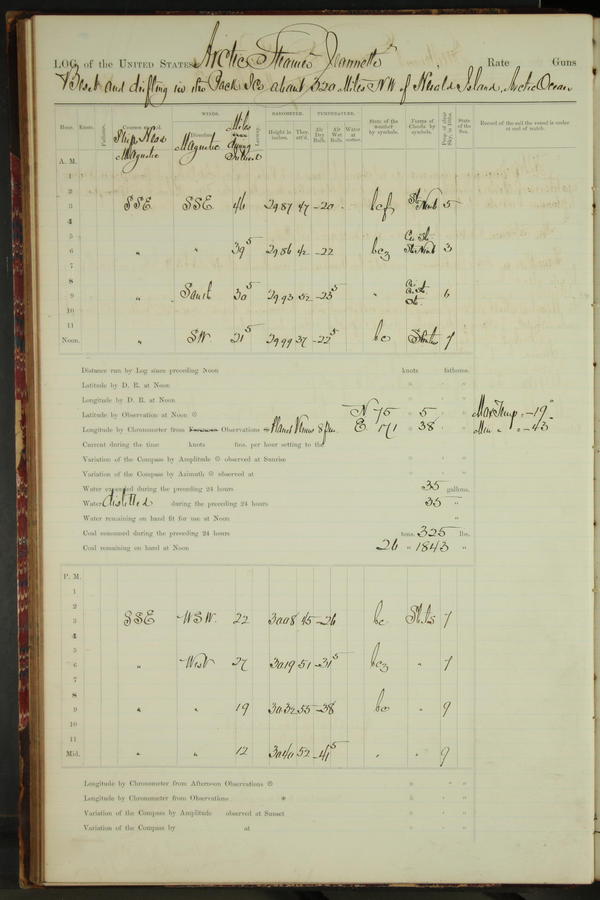 LOG of the UNITED STATES Arctic Steamer "Jeannette" Rate Guns
Beset and drifting in the Pack Ice about 320 Miles NW of Herald Island, Arctic Ocean
WINDS. BAROMETER. TEMPERATURE.
Hour. Knots. Fathoms. Courses Ship's Head Magnetic Direction Magnetic Miles Leeway. Height in inches. Ther. att'd. Air Dry Bulb. Air Wet Bulb. Water at surface. State of the weather by symbols. Forms of Clouds by symbols. Prop. of clear Sky, in 10ths. State of the Sea. Record of the sail the vessel is under at end of watch.
A. M.
1
2
3 SSE SSE 46 29 87 47 -20 bcf 5
4
5
6 " " 39⁵ 29 86 42 -22 bcz 3
7
8
9 " South 30⁵ 29 93 52 -25⁵ " 6
10
11
Noon. " SW 21⁵ 29 99 37 -22⁵ bc Stratus 7
Distance run by Log since preceding Noon knots fathoms.
Latitude by D. R. at Noon ° ' "
Longitude by D. R. at Noon ° ' "
Latitude by Observation at Noon N 75 5 Max Temp -19°
Longitude by Chronometer from Forenoon Observations Venus 8 pm E 171 38 Min " -43
Current during the time knots fms. per hour setting to the
Variation of the Compass by Amplitude observed at Sunrise
Variation of the Compass by Azimuth observed at
Water expended during the preceding 24 hours 35 gallons.
Water distilled during the preceding 24 hours 35 "
Water remaining on hand fit for use at Noon "
Coal consumed during the preceding 24 hours tons. 325 lbs.
Coal remaining on hand at Noon 26 " 1843 "
P. M.
1
2
3 SSE WSW. 22 30 08 45 -26 bc Stratus 7
4
5
6 " West 27 30 19 51 -31⁵ bcz " 7
7
8
9 " " 19 30 32 55 -38 bc " 9
10
11
Mid. " " 12 30 40 52 -41⁵ " " 9
Longitude by Chronometer from Afternoon Observations
Longitude by Chronometer from Observations *
Variation of the Compass by Amplitude observed at Sunset
Variation of the Compass by at